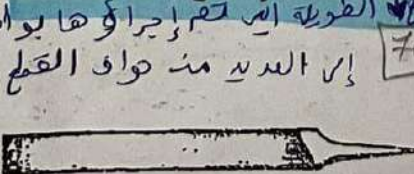 الطويلة التي تتم إجراؤها بوا
إلى العديد من حواف القطع
7